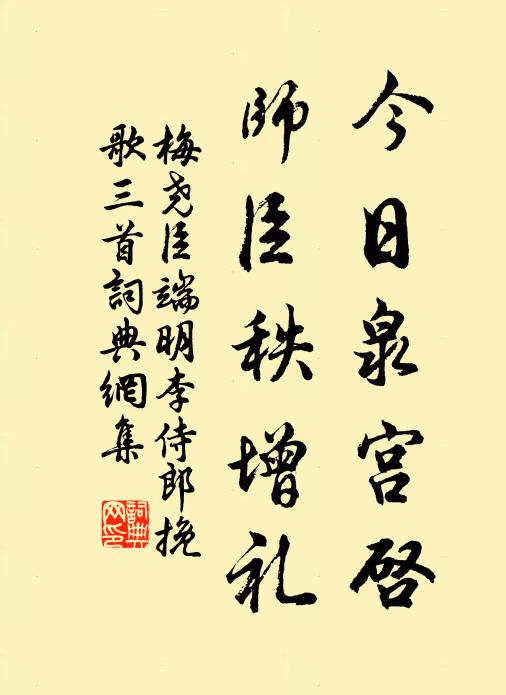 今日泉宫启
師臣秩增礼
梅尧臣端明李侍郎挽
歌三首詞典網集
詞典网印